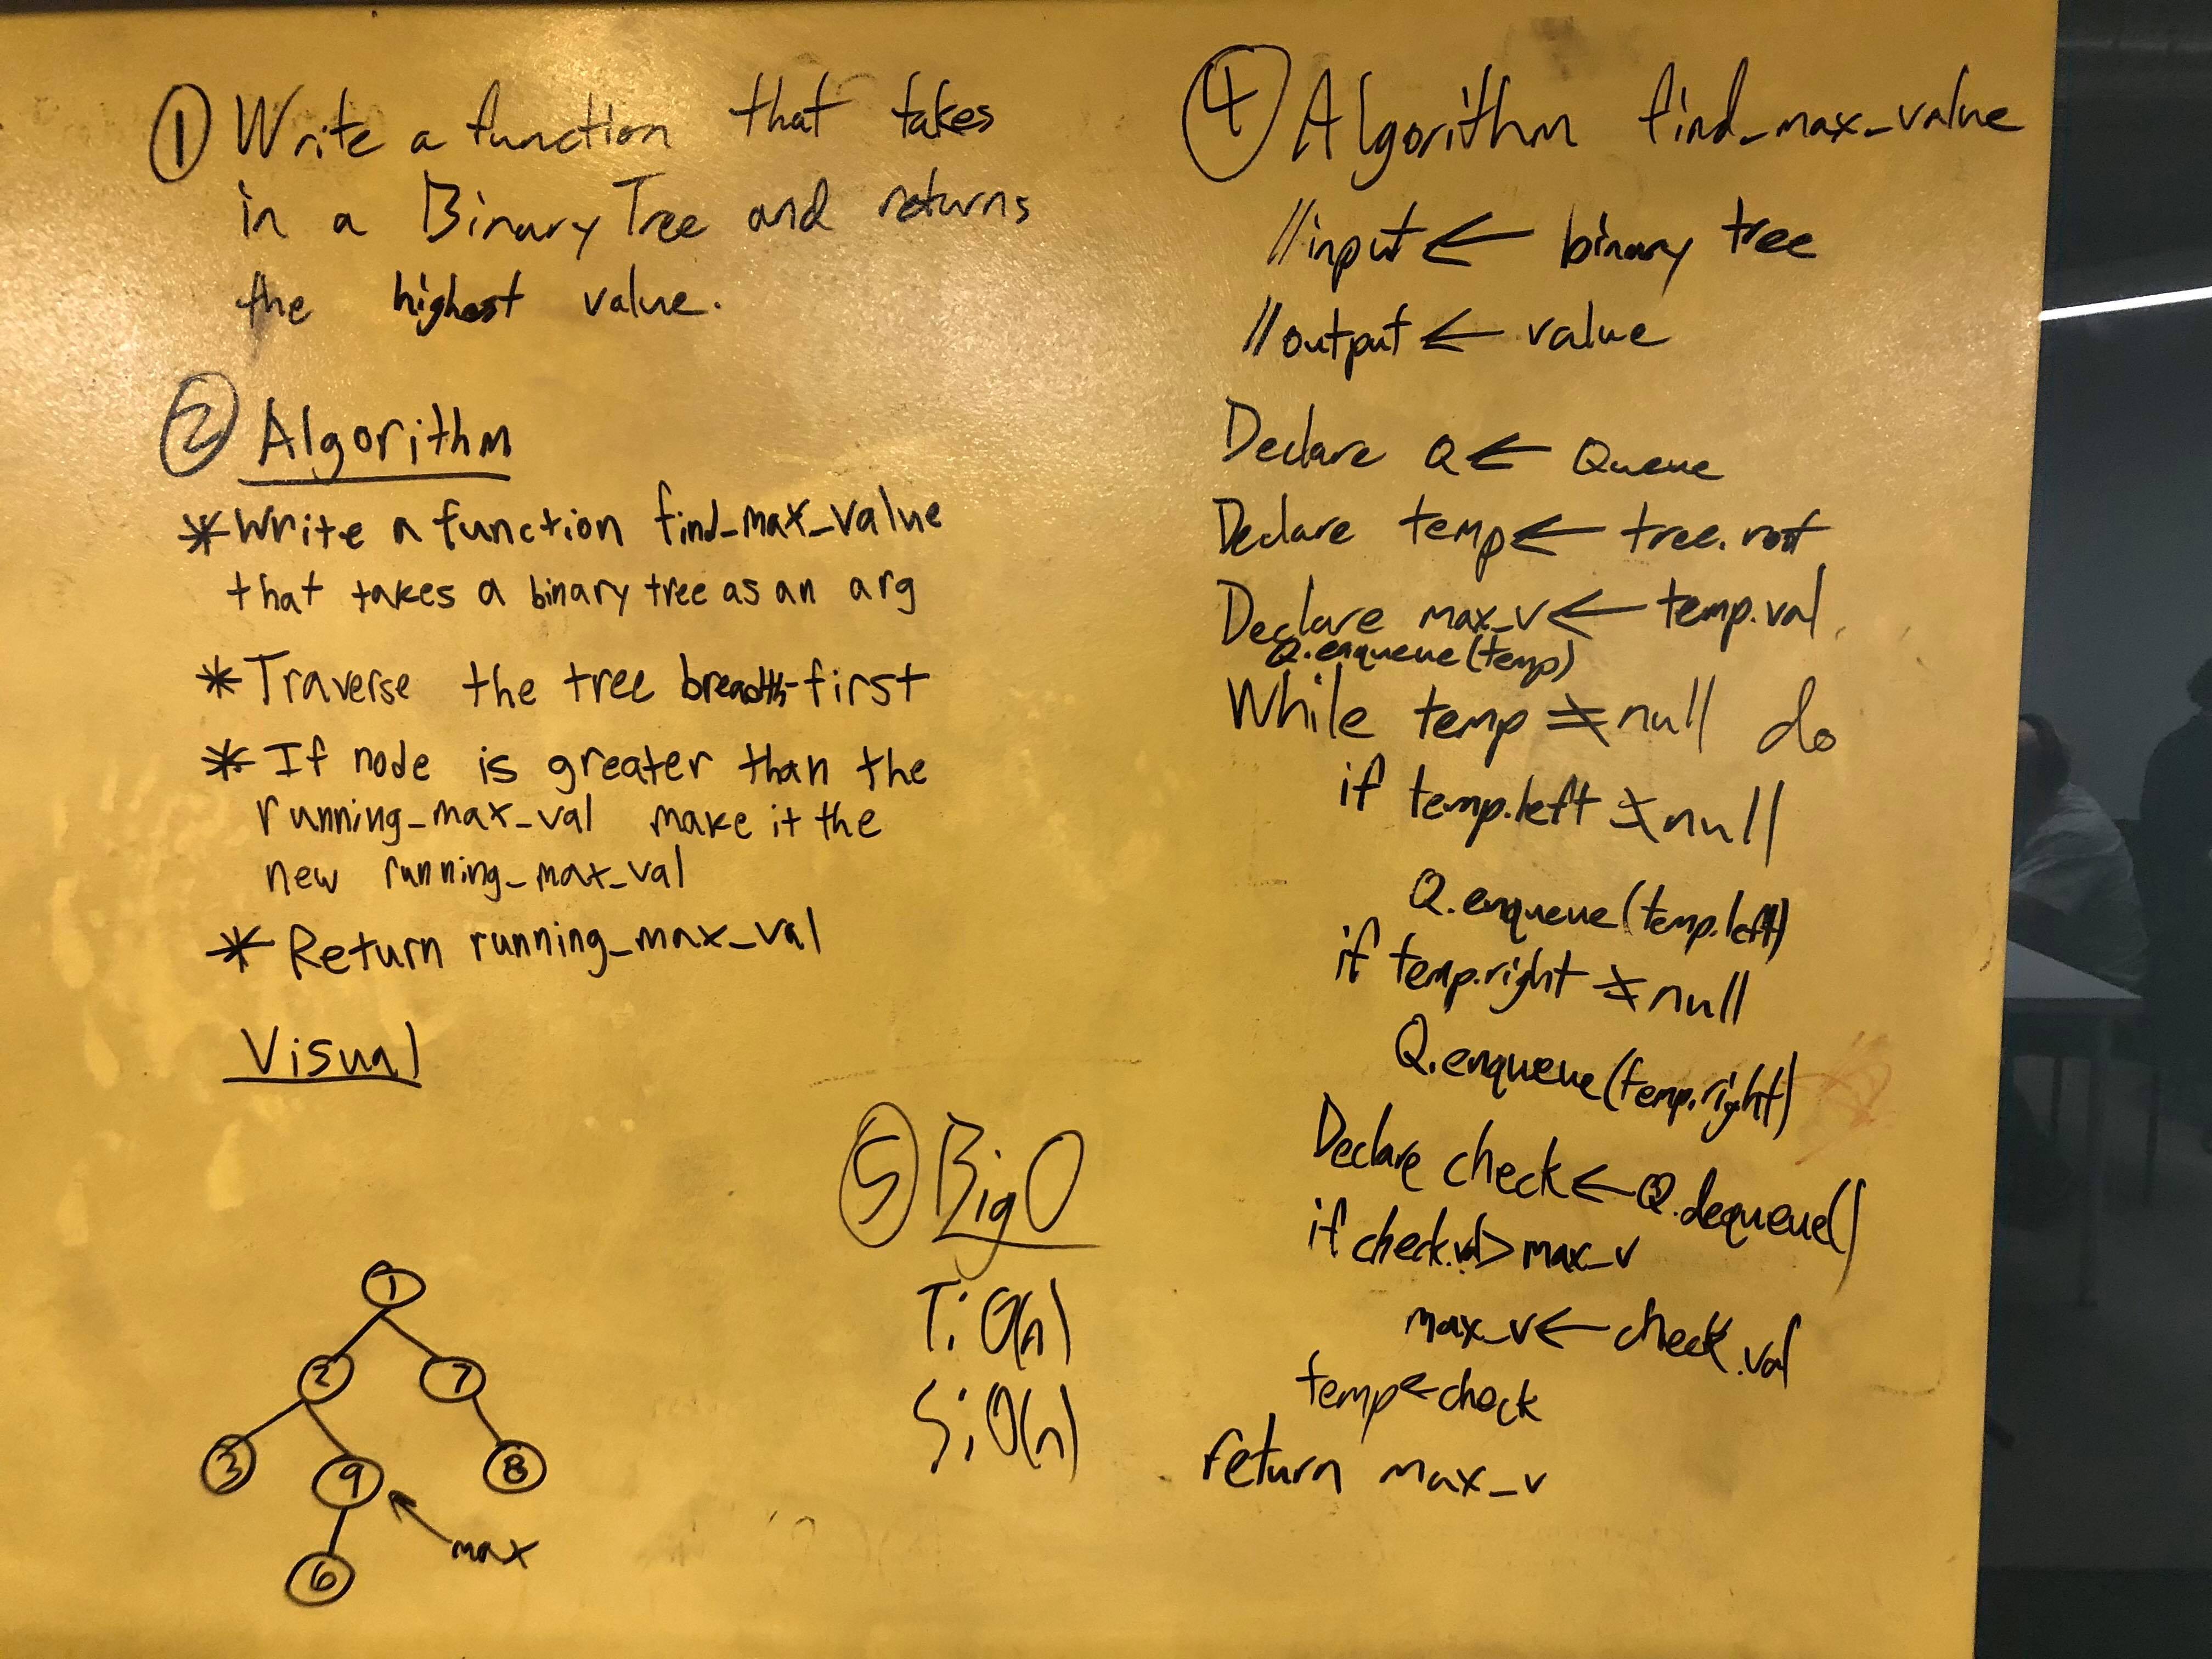 ① Write a function that takes
in a Binary Tree and returns
the highest value.
② Algorithm
* Write a function find_max_value
that takes a binary tree as an arg
* Traverse the tree breadth-first
* If node is greater than the
running_max_val make it the
new running_max_val
* Return running_max_val
Visual
1
2 7
3 9 8
max
6
⑤ Big O
T: O(n)
S: O(n)
④ Algorithm find_max_value
//input ← binary tree
//output ← value
Declare Q ← Queue
Declare temp ← tree.root
Declare max_v ← temp.val
Q.enqueue(temp)
While temp ≠ null do
if temp.left ≠ null
Q.enqueue(temp.left)
if temp.right ≠ null
Q.enqueue(temp.right)
Declare check ← Q.dequeue()
if check.val > max_v
max_v ← check.val
temp ← check
return max_v